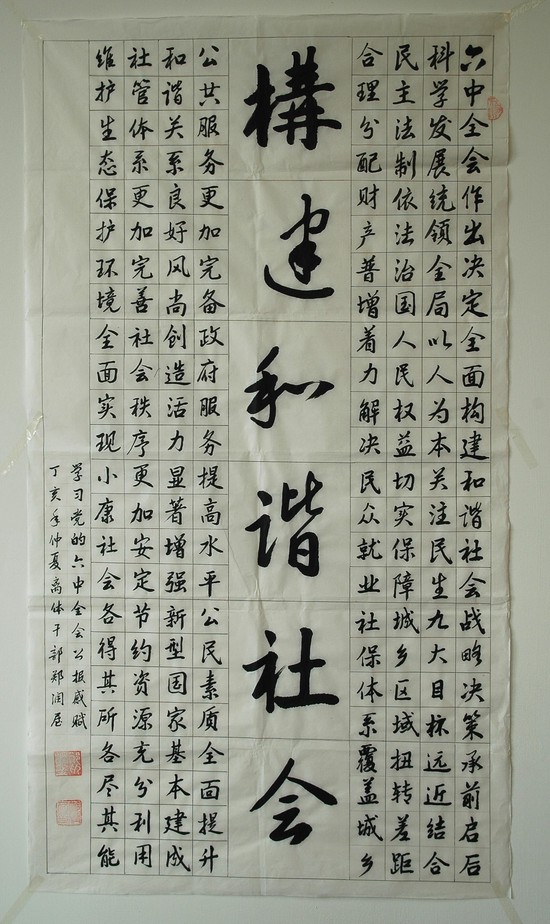 六中全会作出决定全面构建和谐社会战略决策承前启后
科学发展统领全局以人为本关注民生九大目标远近结合
民主法制依法治国人民权益切实保障城乡区域扭转差距
合理分配财产普增着力解决民众就业社保体系覆盖城乡
構建和谐社会
公共服务更加完备政府服务提高水平公民素质全面提升
和谐关系良好风尚创造活力显著增强新型国家基本建成
社管体系更加完善社会秩序更加安定节约资源充分利用
维护生态保护环境全面实现小康社会各得其所各尽其能
学习党的六中全会公报感赋
丁亥年仲夏离休干部郑润